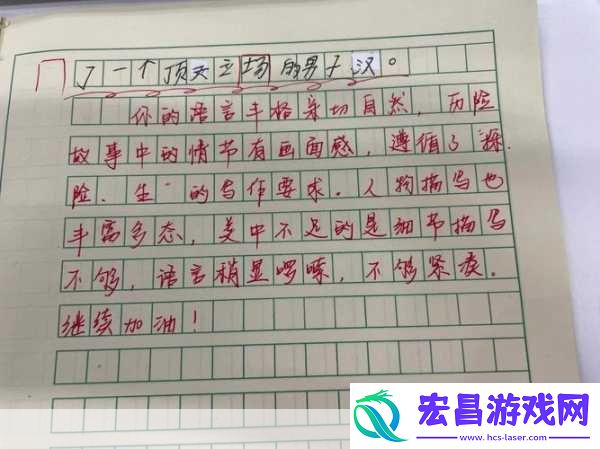 了一个顶天立场的男子汉。
你的语言丰格亲切自然，历险
故事中的情节有画面感，遵循了"探
险"的写作要求。人物描写也
丰富多态，美中不足的是细节描写
不够，语言稍显啰嗦，不够紧凑。
继续加油！
宏昌游戏网
www.hcs-laser.com